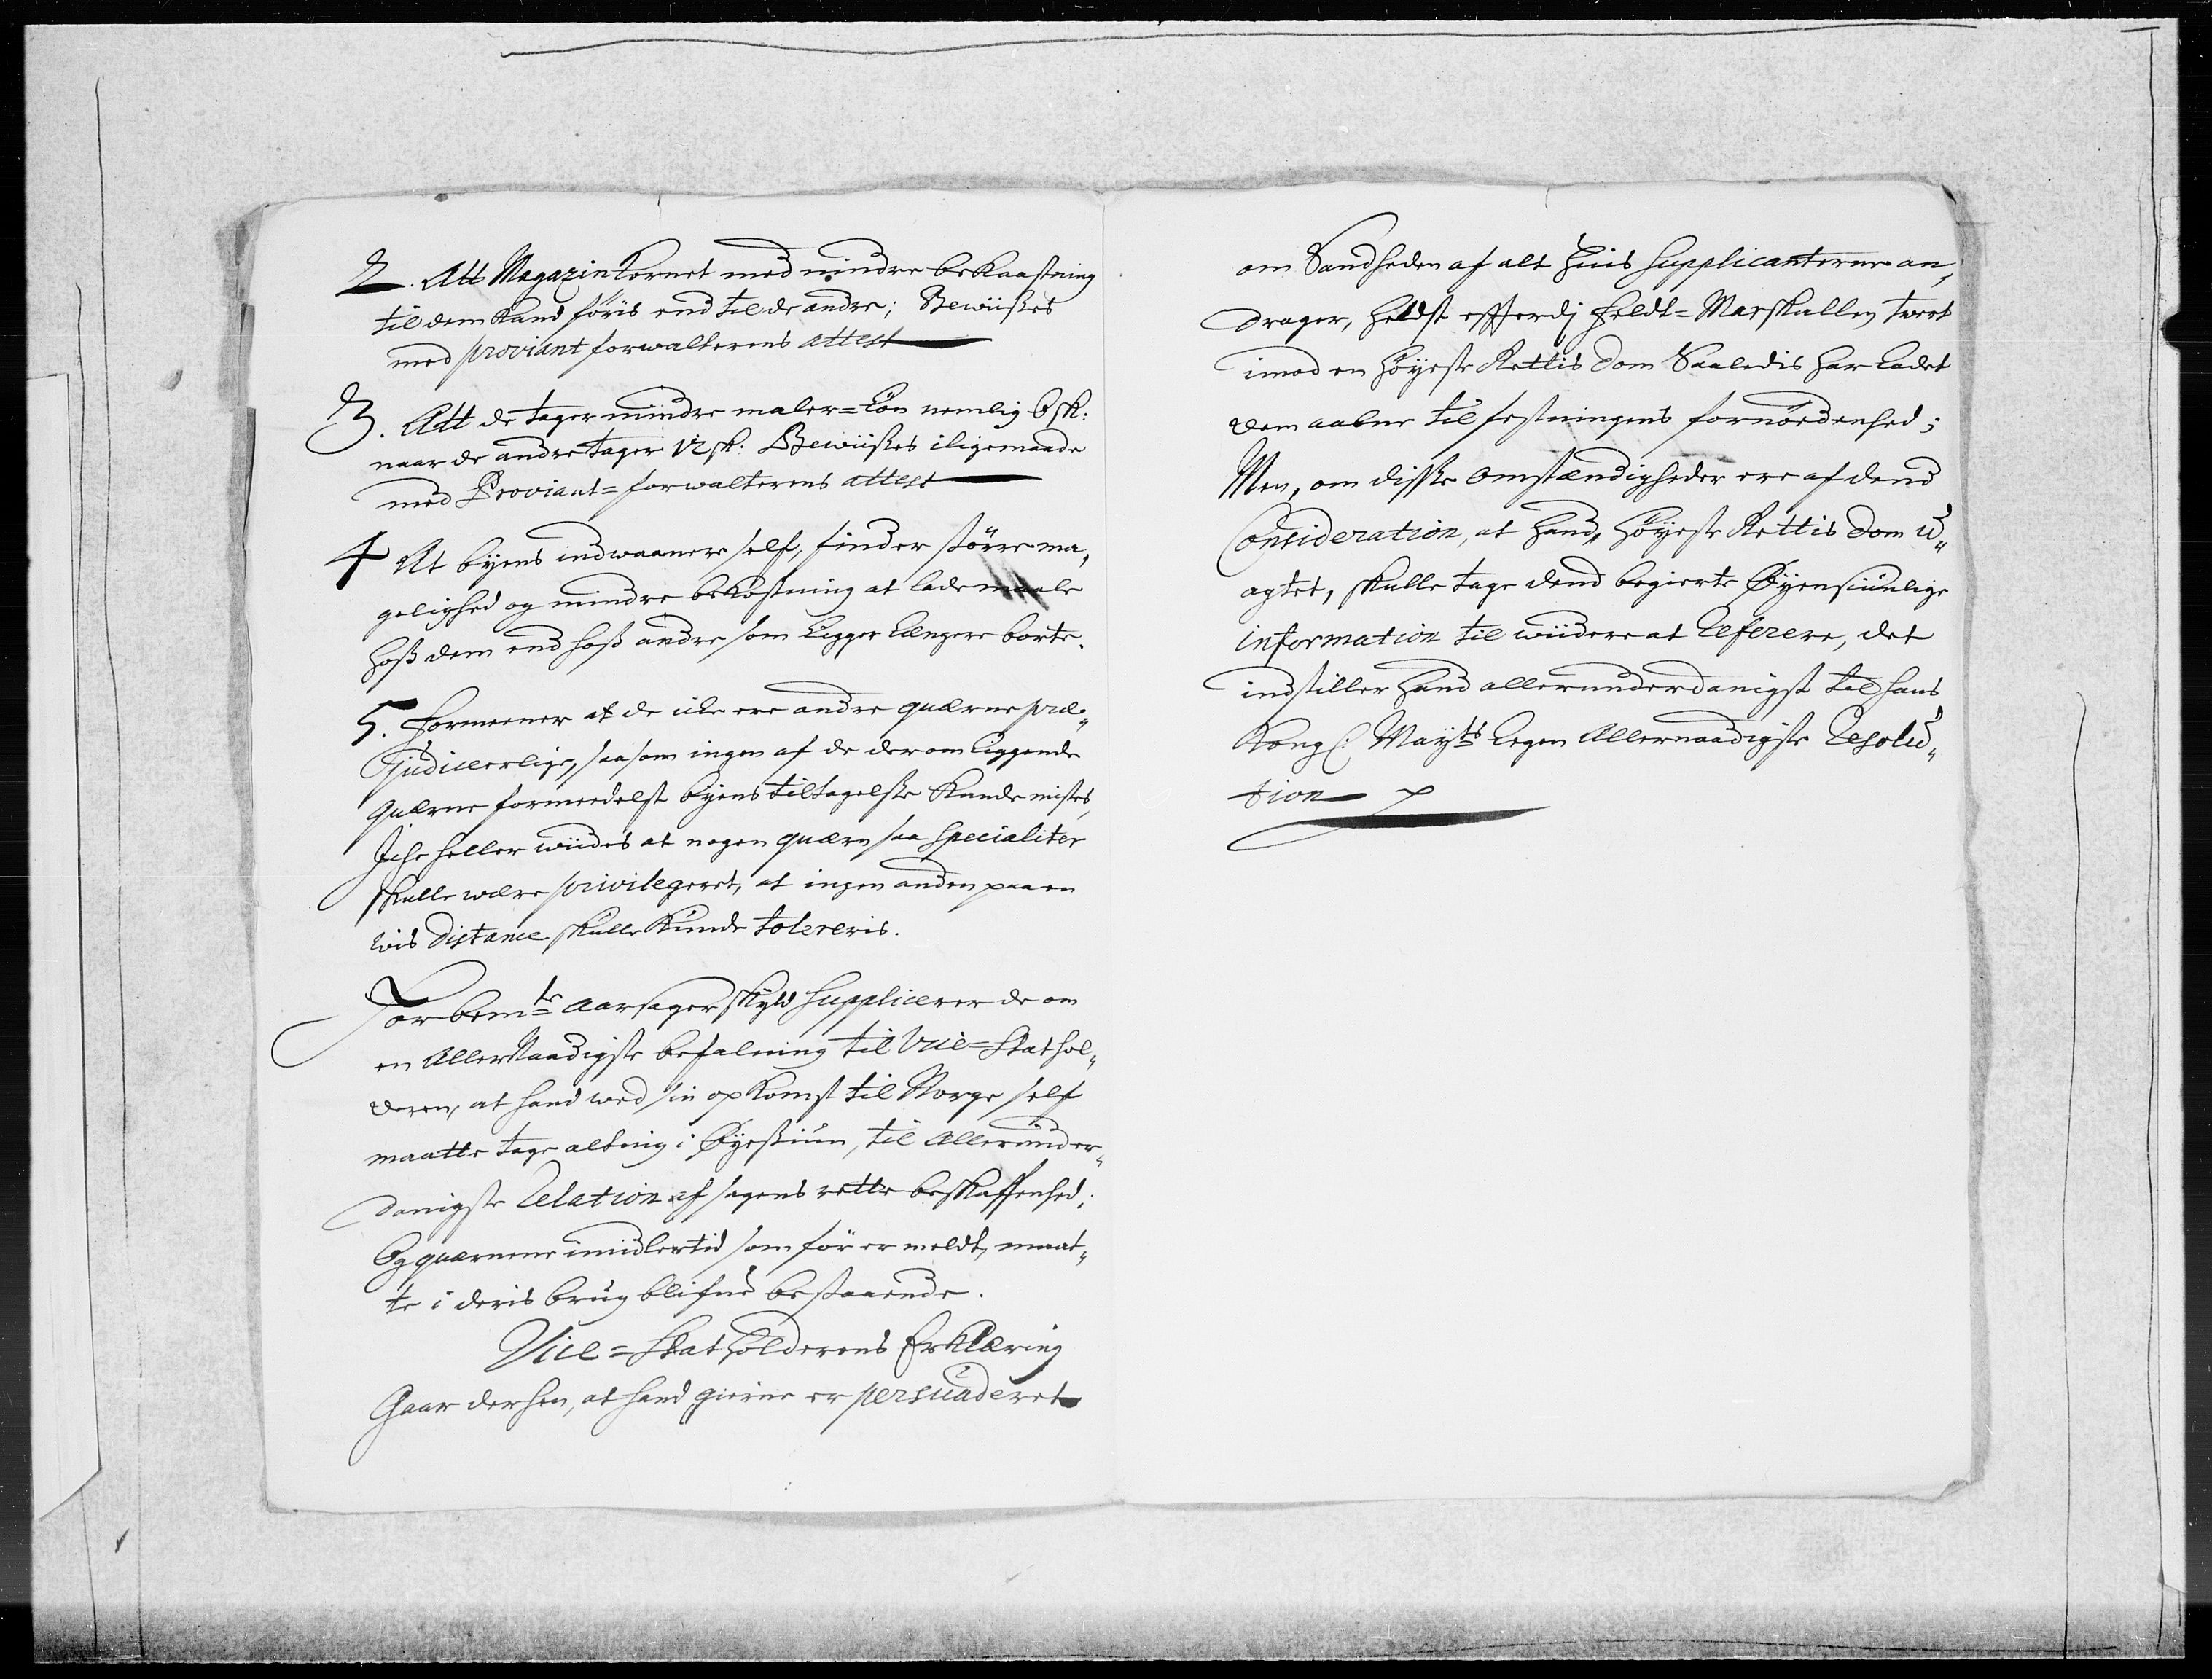 2. Att Magazin Kornet med mindre bekaastning
til dem kand föris end til de andre; Bewiises
med proviant forwalterens attest
3. Att de tager mindre maler=Lön nemlig 6 sk:
naar de andre tager 12 sk: Bewiises iligemaade
med Proviant=forwalterens attest
4 At byens indwaanere self, finder större ma„
gelighed og mindre bekostning at lade maale
hoss dem end hoss andre som Ligger Længere borte.
5. Formeener at de icke ere andre quærne præ„
judicerlige, saasom ingen af de der om Liggende
quærne formedelst byens tiltagelse kunde mistes,
Iche heller wiides at nogen quærn saa specialiter
skulle være privilegeret, at ingen anden paa en
wis distance skulle kunde tolereris.
For bemte aarsager skyld supplicerer de om
en Allernaadigste befalning til Vice=Stathol„
deren, at hand wed sin opkomst til Norge self
maatte tage alting i Øyesiun, til Allerunder„
danigste Relation af sagens rette beskaffenhed;
Og quærnene imidlertid som för er meldt, maat„
te i deris brug blifue bestaaende.
Vice=Statholderens Erklæring
Gaar derhen, at hand gierne er persuaderet
om Sandheden af alt huis Supplicanterne an„
drager, heldst efterdj Feldt=Marskallen twert
imod en höyeste Rettis Dom Saaledis har Ladet
dem aabne til festningens fornöedenhed;
Men, om disse omstændigheder ere af dend
Consideration, at hand, höyeste Rettis Dom u„
agtet, skulle tage dend begierte Øyensiunlige
information til widere at Referere, det
indstiller hand allerunderdanigst til hans
Kongl: Mayts Legen Allernaadigste Resolu„
tion